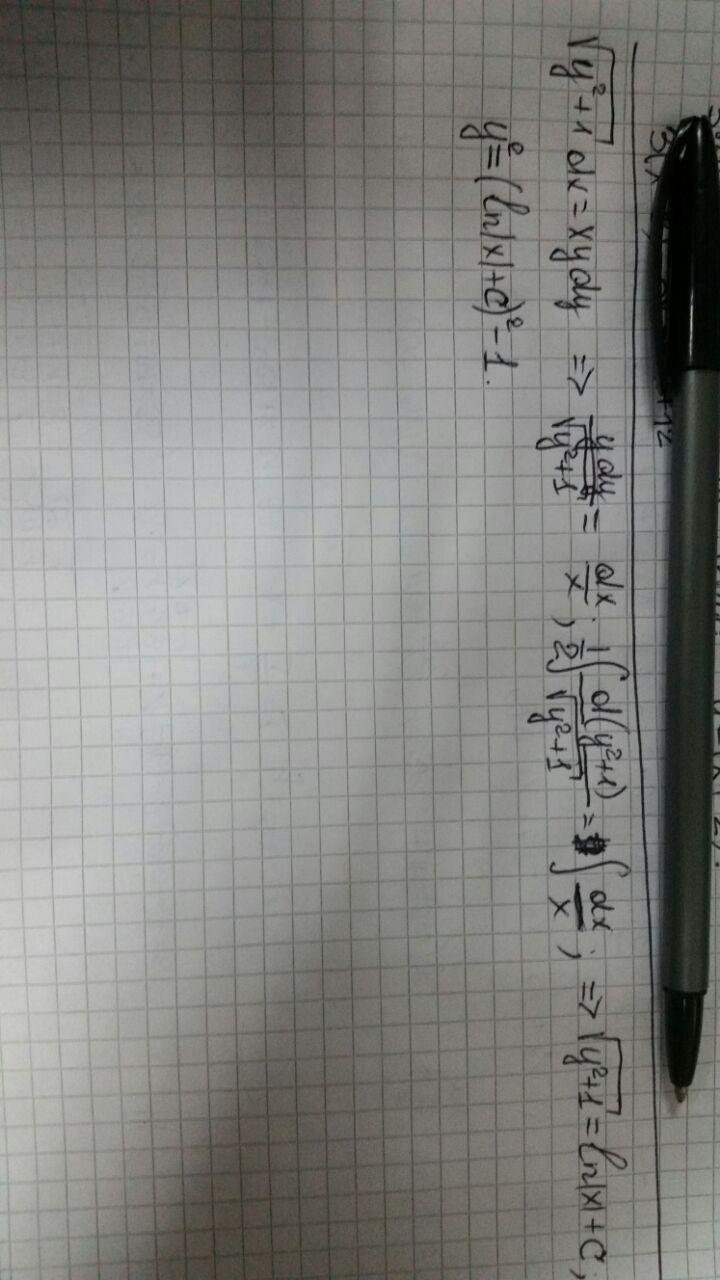 √(y²+1) dx = xy dy => y dy/√(y²+1) = dx/x; 1/2 ∫ d(y²+1)/√(y²+1) = ∫ dx/x; => √(y²+1) = ln|x|+C,
y² = (ln|x|+C)² - 1.